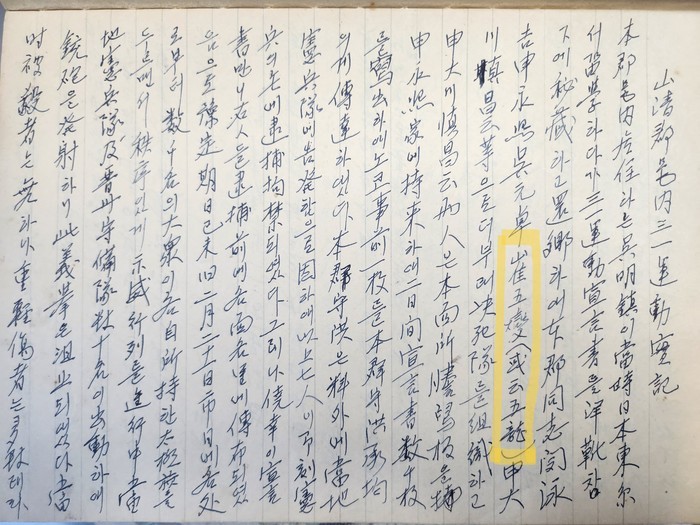 山淸郡邑內三一運動實記
本郡邑內居住하는吳明鎭이當時日本東京
서留學하다가三一運動宣言書를洋靴창
下에秘藏하고還鄕하여本郡同志閔泳
吉申永熙吳元卓崔五燮(或云五龍)申大
川愼昌云等으로더부러決死隊를組織하고
申大川愼昌云兩人은本面所謄寫板을
申永熙家에持來하여二日間宣言書數千枚
를寫出하여事前一枚를本郡守洪承均
의게傳達하엿다本郡守洪은料外에當地
憲兵隊에告發함으로因하여以上七人이卽刻憲
兵의손에逮捕拘禁되엿다그러나僥幸이宣言
書만니右人을逮捕前에各面各里에傳布되엿
음으로豫定期日己未旧二月二十日市日에各處
로부터數千名의大衆이各自所持한太極旗를
들면서秩序잇게示威行列을進行中當
地憲兵隊及晋州守備隊數十名이出動하여
銃砲를發射하니此義擧는沮止되엿다當
時被殺者는無하나重輕傷者는多數더라